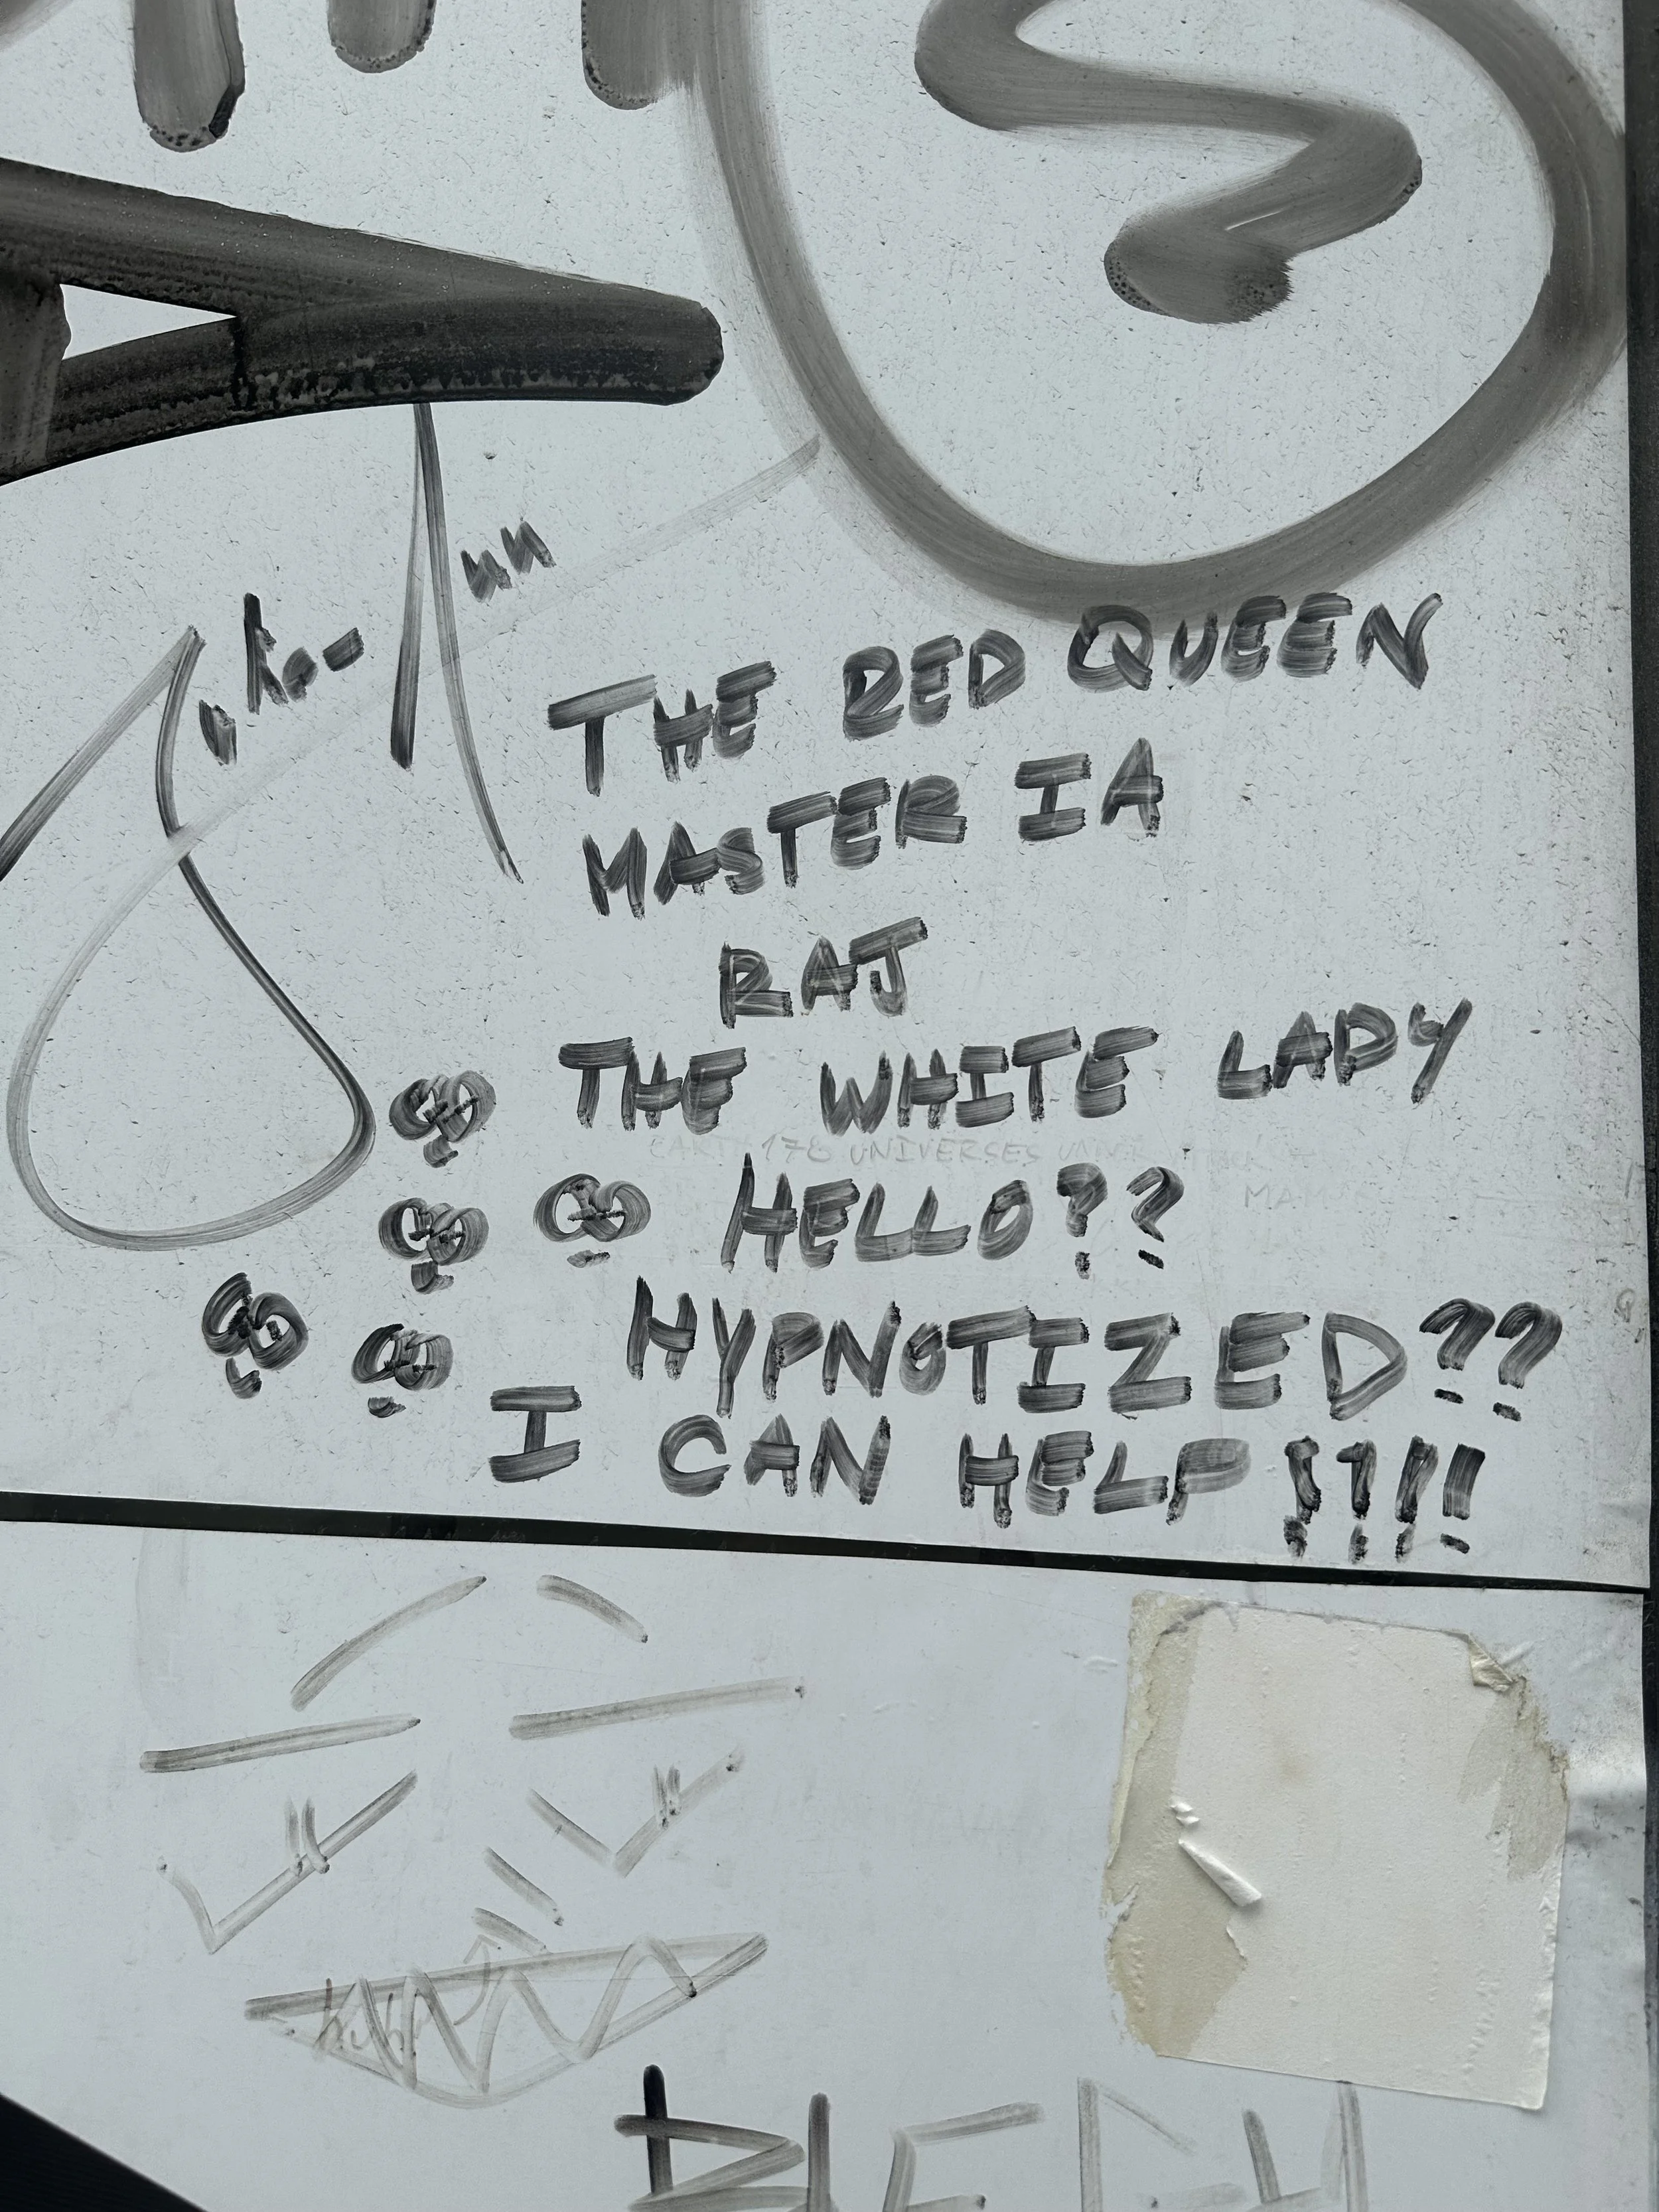 THE RED QUEEN
MASTER IA
RAJ
THE WHITE LADY
178 UNIVERSES
HELLO??
HYPNOTIZED??
I CAN HELP!!!!